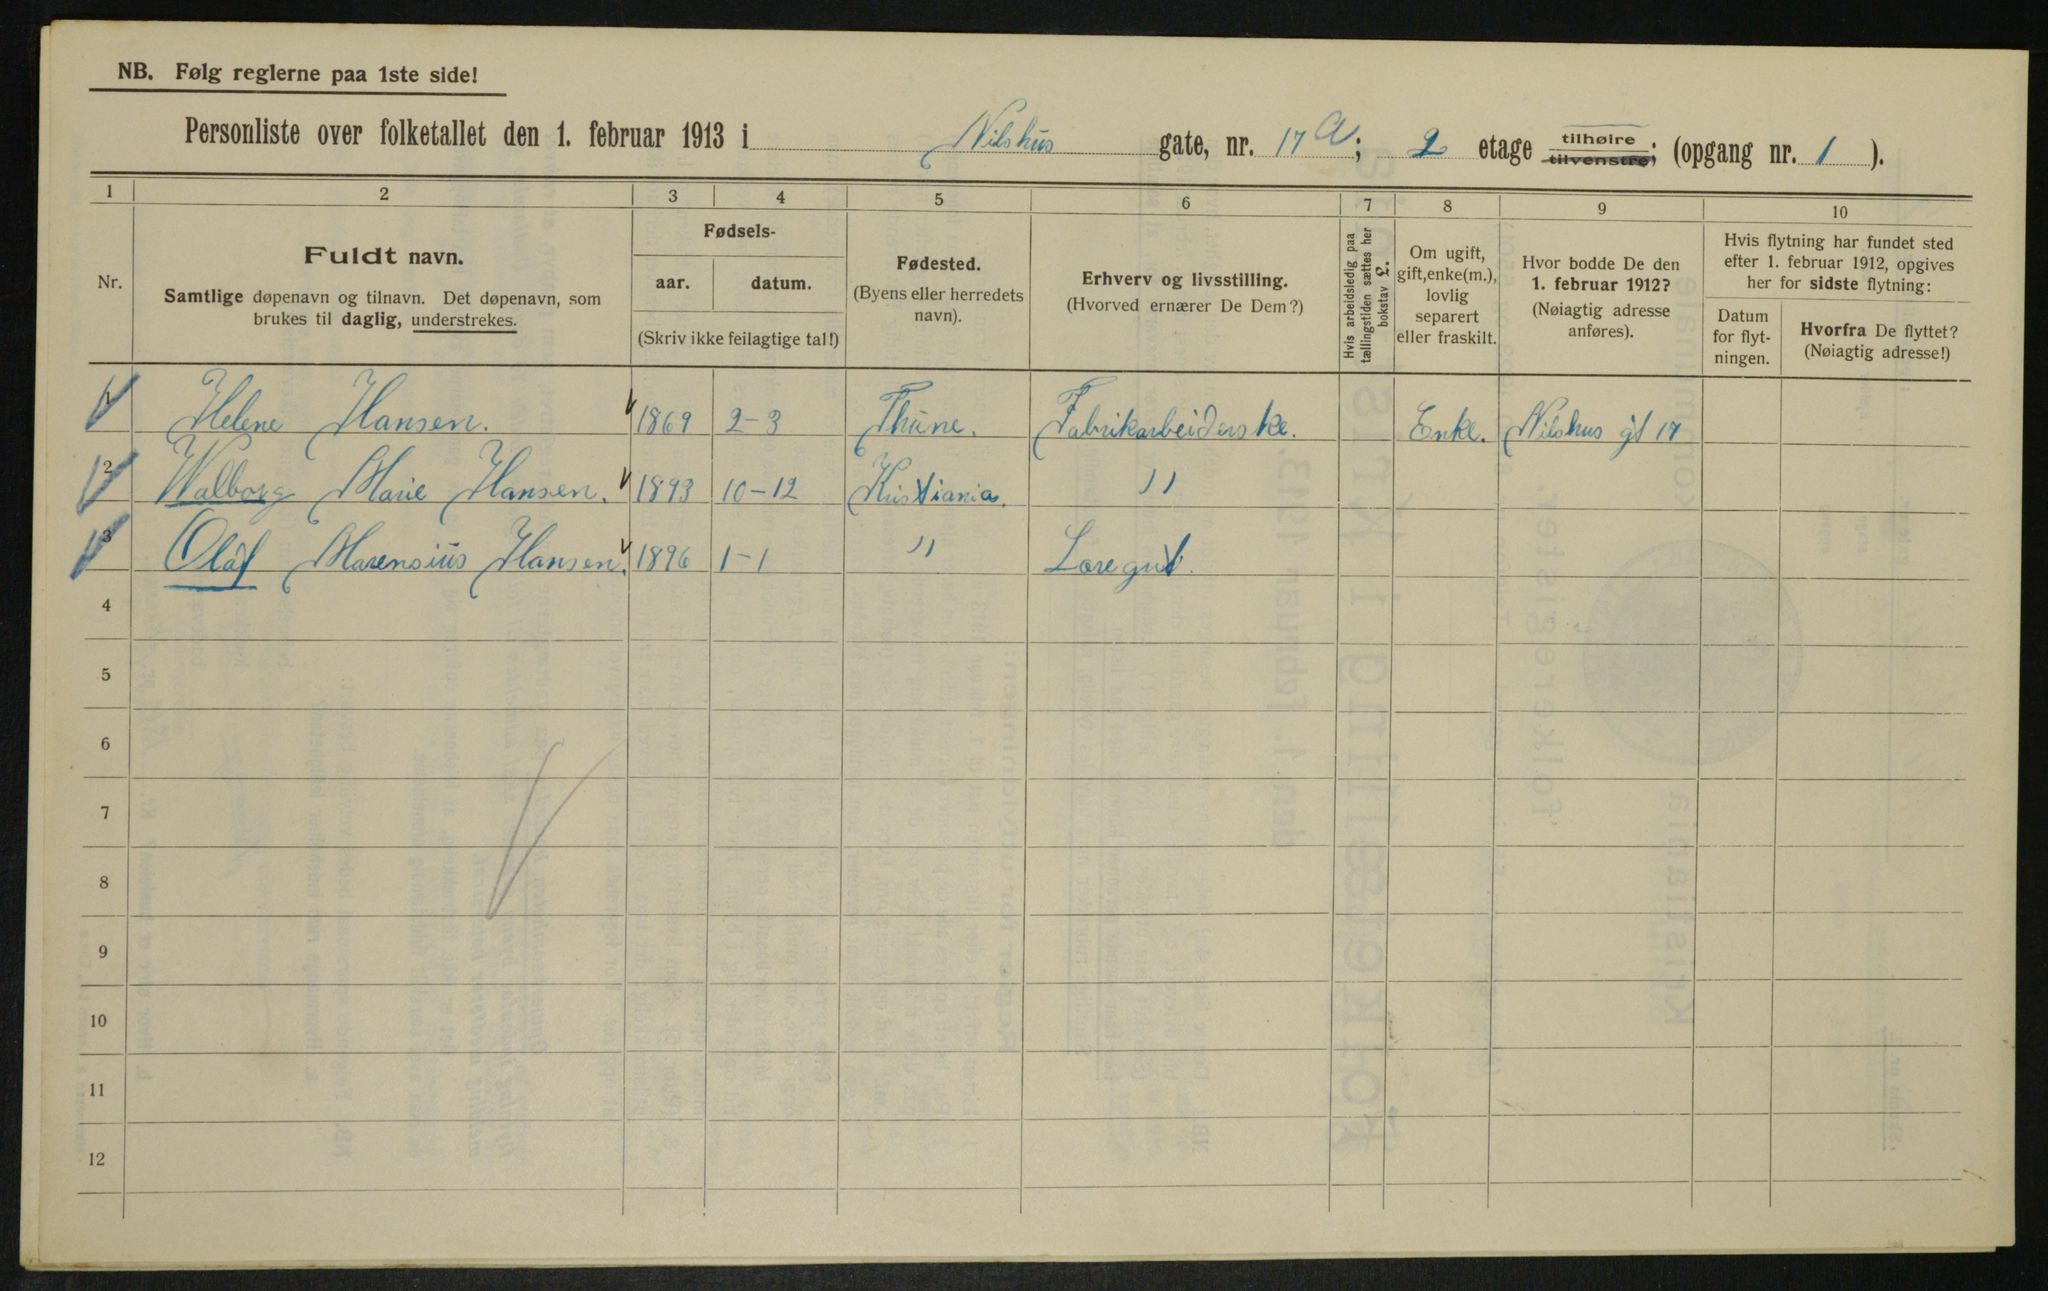 NB. Følg reglerne paa 1ste side!
Personliste over folketallet den 1. februar 1913 i Nilshus gate, nr. 17 a; 2 etage tilhøire tilvenstre; (opgang nr. 1 ).
1 2 3 4 5 6 7 8 9 10
Nr.
Fuldt navn.
Samtlige døpenavn og tilnavn. Det døpenavn, som
brukes til daglig, understrekes.
Fødsels-
aar. datum.
(Skriv ikke feilagtige tal!)
Fødested.
(Byens eller herredets
navn).
Erhverv og livsstilling.
(Hvorved ernærer De Dem?)
Hvis arbeidsledig paa
tællingstiden sættes her
bokstav L.
Om ugift,
gift, enke(m.),
lovlig
separert
eller fraskilt.
Hvor bodde De den
1. februar 1912?
(Nøiagtig adresse
anføres).
Hvis flytning har fundet sted
efter 1. februar 1912, opgives
her for sidste flytning:
Datum
for flyt-
ningen.
Hvorfra De flyttet?
(Nøiagtig adresse!)
1 Helene Hansen. 1869 2-3 Thune. Fabrikarbeiderske. Enke. Nilshus gt 17
2 Walborg Marie Hansen. 1893 10-12 Kristiania. "
3 Olaf Marensius Hansen. 1896 1-1 " Læregut.
4
5
6
7
8
9
10
11
12